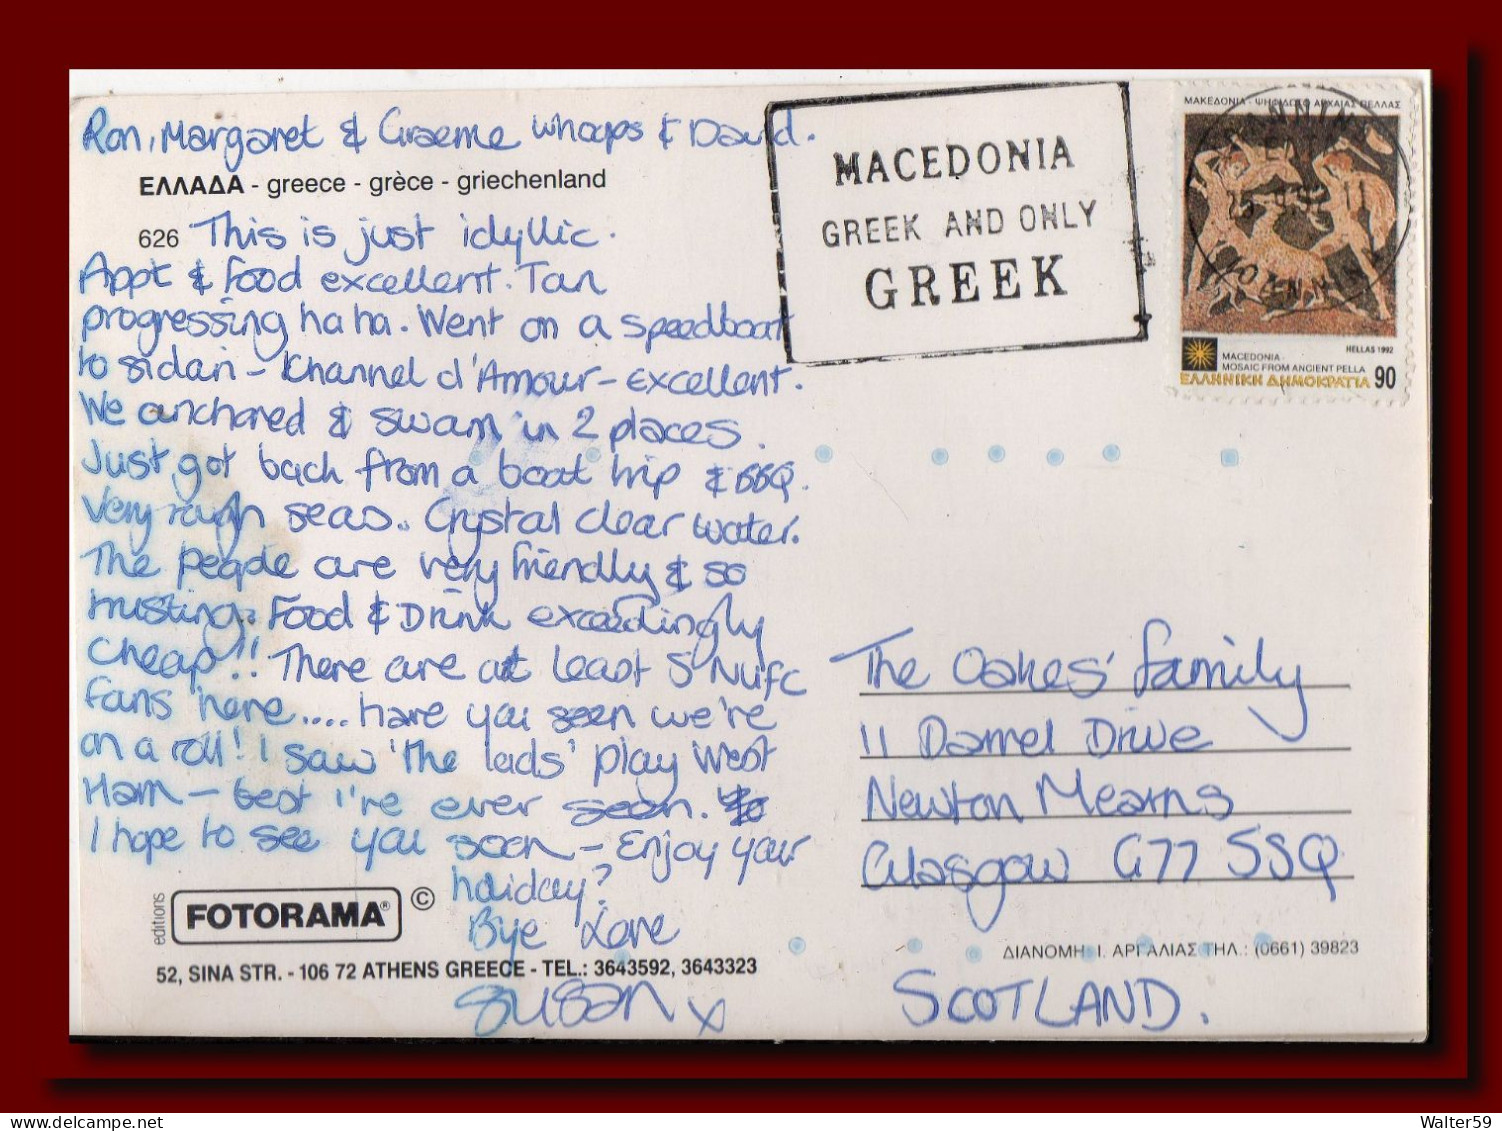 Ron, Margaret & Graeme whoops & David.
ΕΛΛΑΔΑ - greece - grèce - griechenland
626 This is just idyllic.
Appt & food excellent. Tan
progressing ha ha. Went on a speedboat
to sidari - Khannel d'Amour - excellent.
We anchored & swam in 2 places.
Just got back from a boat trip & BBQ.
Very rough seas.. Crystal clear water.
The people are very friendly & so
trusting. Food & Drink exceedingly
cheap!! There are at least 5 NUFC
fans here.... have you seen we're
on a roll! I saw 'the lads' play West
Ham - best I've ever seen.
I hope to see you soon - Enjoy your
holiday?
Bye Love
Susan x
editions FOTORAMA® ©
52, SINA STR. - 106 72 ATHENS GREECE - TEL.: 3643592, 3643323
MACEDONIA
GREEK AND ONLY
GREEK
ΜΑΚΕΔΟΝΙΑ - ΨΗΦΙΔΩΤΟ ΑΡΧΑΙΑΣ ΠΕΛΛΑΣ
HELLAS 1992
MACEDONIA -
MOSAIC FROM ANCIENT PELLA
ΕΛΛΗΝΙΚΗ ΔΗΜΟΚΡΑΤΙΑ 90
The Oakes' family
11 Darnel Drive
Newton Mearns
Glasgow G77 5SQ
ΔΙΑΝΟΜΗ: Ι. ΑΡΓΑΛΙΑΣ ΤΗΛ.: (0661) 39823
SCOTLAND.
Walter59